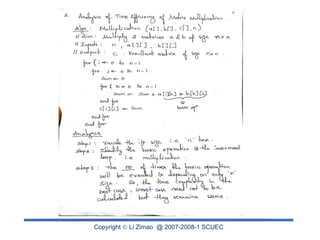 2. Analysis of Time Efficiency of Matrix Multiplication.
Algo : Multiplication (a[], b[], c[], n)
// Aim : Multiply 2 matrices a & b of size n×n
// Inputs : n, a[][], b[][]
// Output : c : Resultant matrix of size n×n.
for i ← 0 to n-1
for j ← 0 to n-1
Sum ← 0
for k ← 0 to n-1
Sum ← Sum + a[i][k] * b[k][j]
end for
c[i][j] ← Sum
end for
end for
Analysis
Step1 : Decide the i/p size i.e 'n' here.
Step2 : Identify the basic operation is the innermost
loop. i.e multiplication.
Step3 : The no of times the basic operation
will be executed is depending on only 'n'
size. So, the time complexity in the
best case, worst case need not to be
calculated but they remains same.
Copyright © Li Zimao @ 2007-2008-1 SCUEC